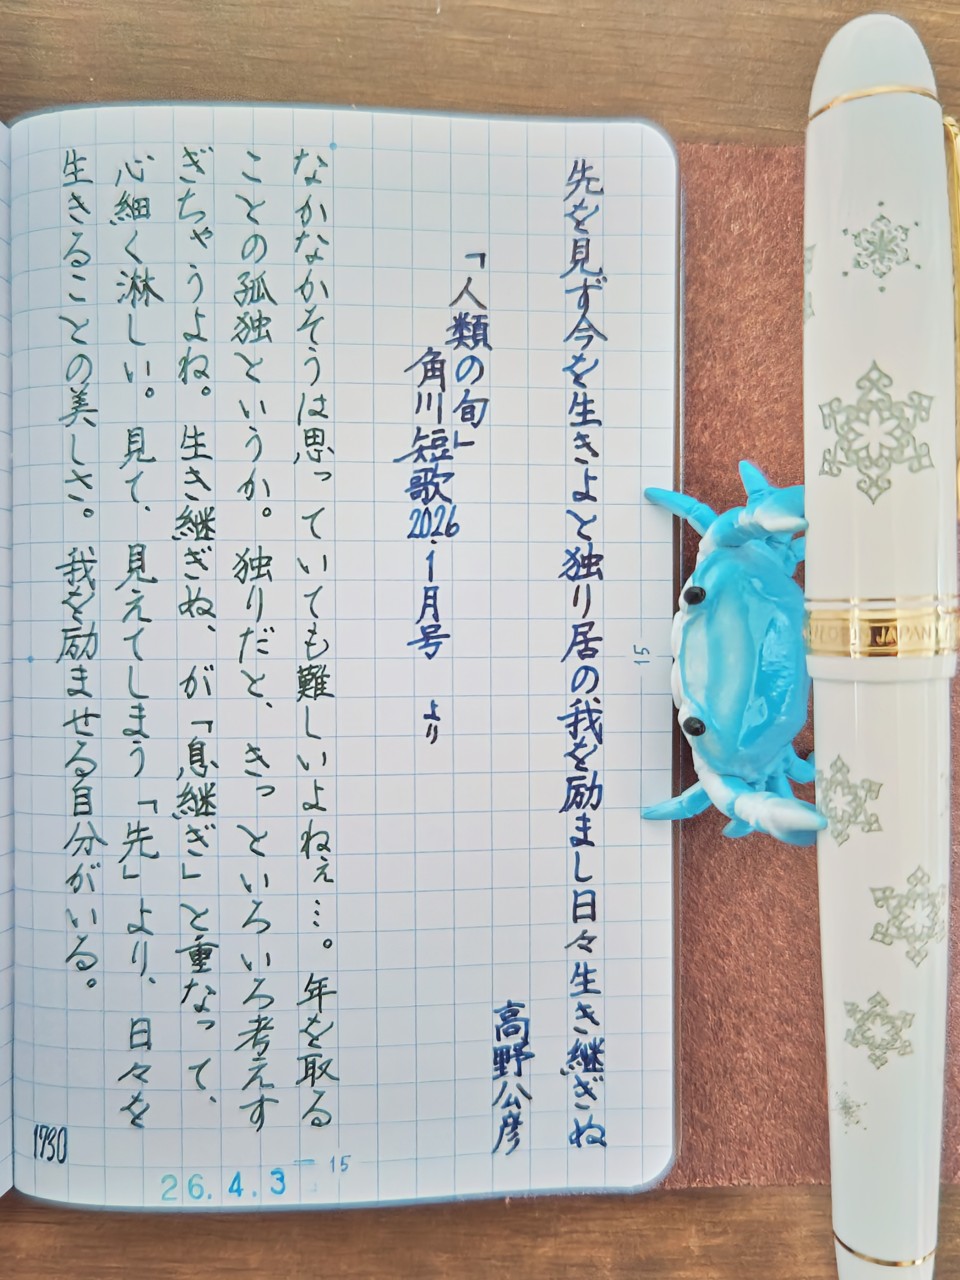 先を見ず今を生きよと独り居の我を励まし日々生き継ぎぬ
高野公彦
「人類の旬」
角川短歌2026.1月号 より
なかなかそうは思っていても難しいよねぇ…。年を取る
ことの孤独というか。独りだと、きっといろいろ考えす
ぎちゃうよね。生き継ぎぬ、が「息継ぎ」と重なって、
心細く淋しい。見て、見えてしまう「先」より、日々を
生きることの美しさ。我を励ませる自分がいる。
1730
26.4.3
15
15
PILOT JAPAN